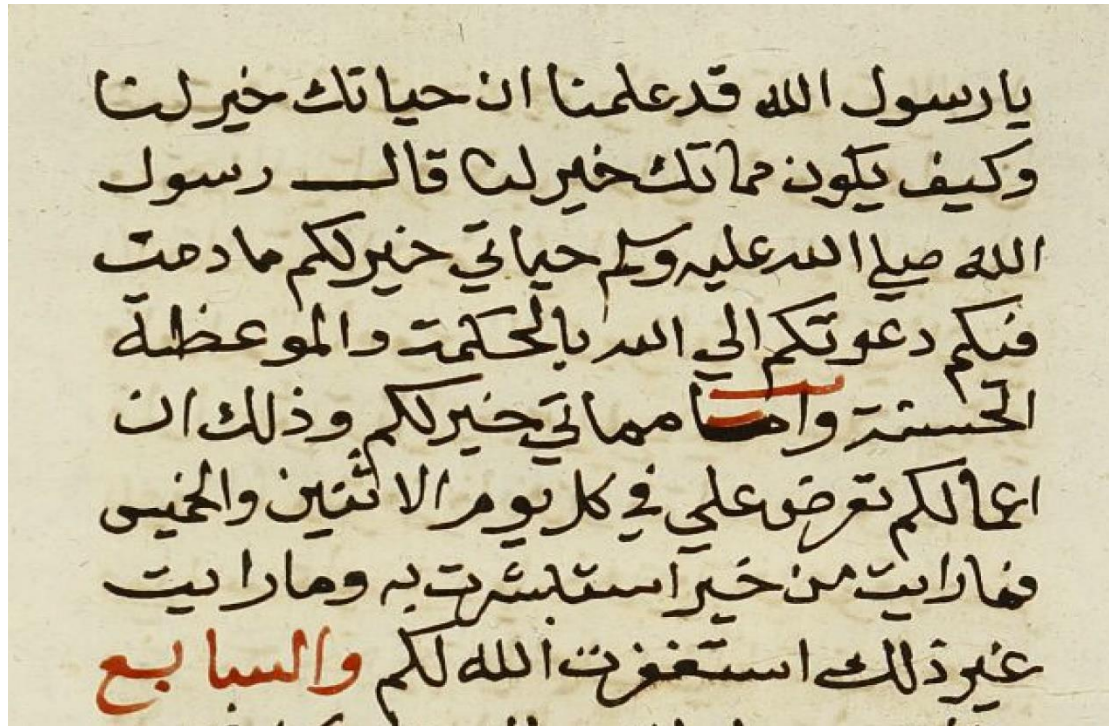 يا رسول الله قد علمنا ان حياتك خير لنا
وكيف يكون مماتك خير لنا قال رسول
الله صلي الله عليه وسلم حياتي خير لكم ما دمت
فيكم دعوتكم الي الله بالحكمة والموعظة
الحسنة واما مماتي خير لكم وذلك ان
اعمالكم تعرض علي في كل يوم الاثنين والخميس
فما رايت من خير استبشرت به وما رايت
غير ذلك استغفرت الله لكم والسابع